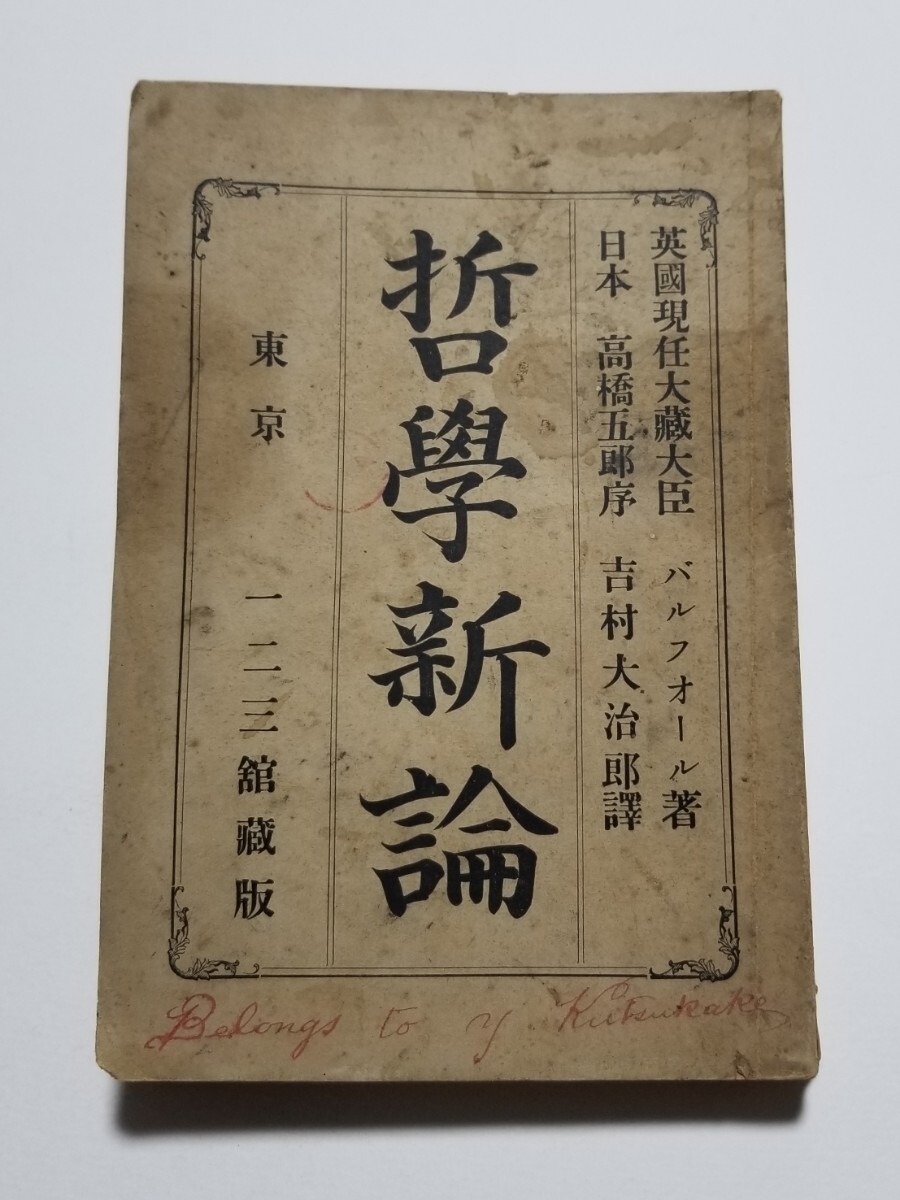 英國現任大藏大臣 バルフオール著
日本 高橋五郎序 吉村大治郎譯
哲學新論
東京 一二三舘藏版
Belongs to Y Kutsukake